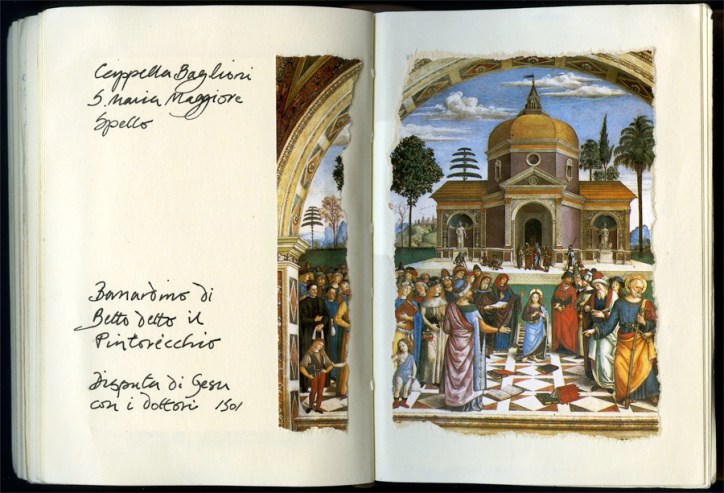 Cappella Baglioni
S. Maria Maggiore
Spello
Bernardino di
Betto detto il
Pintoricchio
Disputa di Gesu
con i dottori 1501